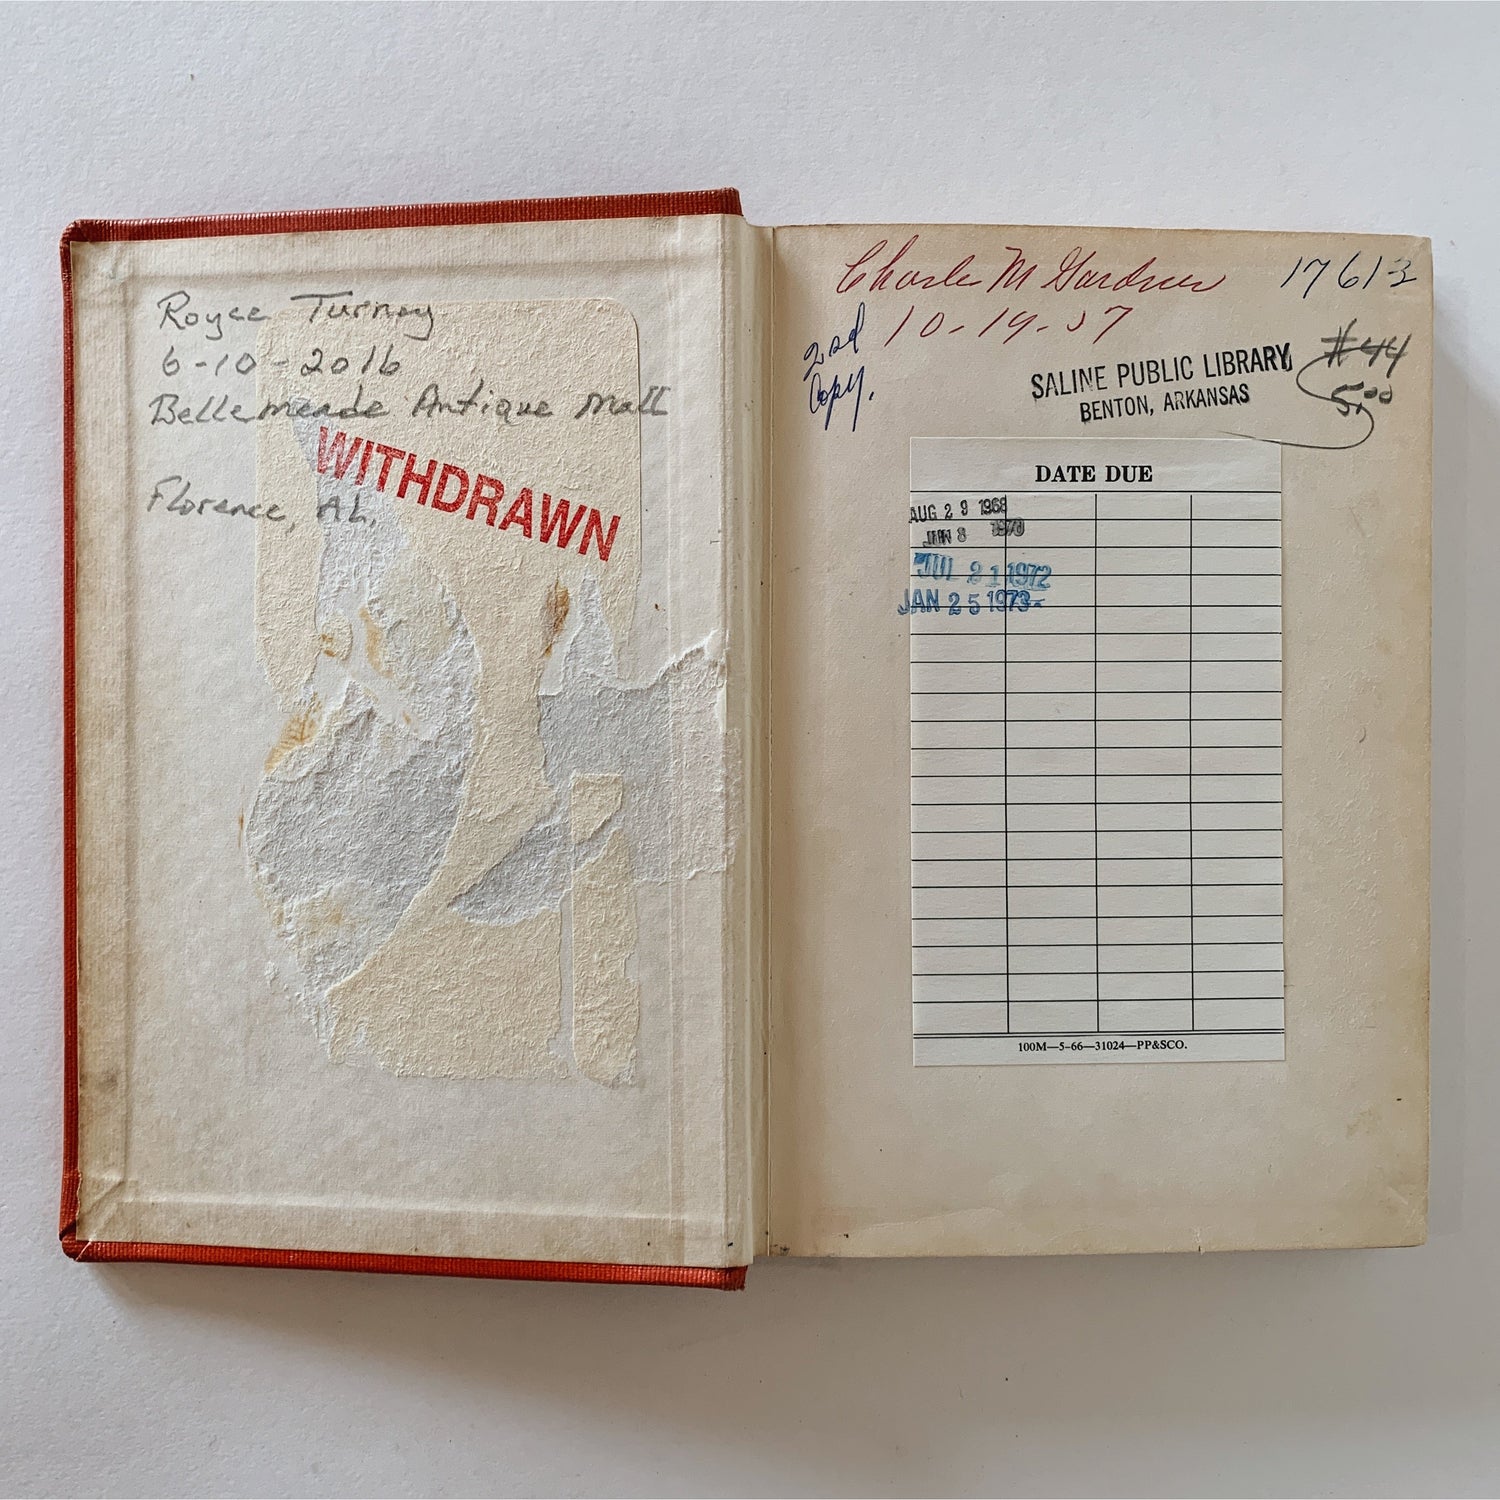 Royce Turney
6-10-2016
Bellemeade Antique Mall
Florence, AL.
WITHDRAWN
Charles M Gardner
10-19-57
17613
2nd
Copy.
SALINE PUBLIC LIBRARY
BENTON, ARKANSAS
#44
5.00
DATE DUE
AUG 29 1968
JUN 8 1970
JUL 21 1972
JAN 25 1973
100M—5-66—31024—PP&SCO.